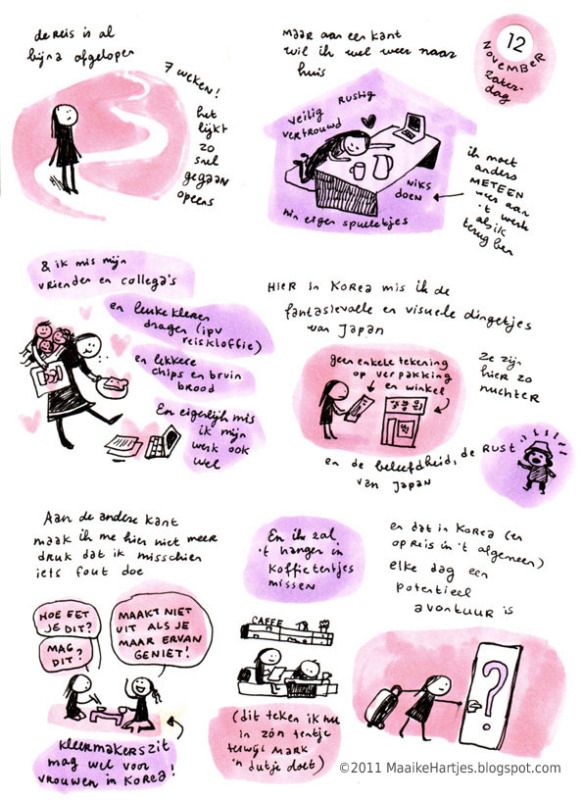 de reis is al
bijna afgelopen
7 weken!
het
lijkt
zo
snel
gegaan
opeens
MAAR aan een kant
wil ik wel weer naar
huis
12
NOVEMBER
zater-
dag
RUSTIG
veilig
vertrouwd
NIKS
DOEN
mijn eigen spulletjes
ik moet
anders
METEEN
weer aan
't werk
als ik
terug ben
& ik mis mijn
vrienden en collega's
en leuke kleren
dragen (ipv
reiskloffie)
en lekkere
chips en bruin
brood
En eigenlijk mis
ik mijn
werk ook
wel
HIER in Korea mis ik de
fantasievolle en visuele dingetjes
van Japan
geen enkele tekening
op verpakking
en winkel
Ze zijn
hier zo
nuchter
en de beleefdheid, de RUST
van Japan
Aan de andere kant
maak ik me hier niet meer
druk dat ik misschien
iets fout doe
HOE EET
JE DIT?
MAG
DIT?
MAAKT NIET
UIT ALS JE
MAAR ERVAN
GENIET!
kleermakerszit
mag wel voor
vrouwen in Korea!
En ik zal
't hangen in
koffietentjes
missen
CAFFE
(dit teken ik nu
in zo'n tentje
terwijl Mark
'n dutje doet)
en dat in Korea (en
op reis in 't algemeen)
elke dag een
potentieel
avontuur is
?
©2011 MaaikeHartjes.blogspot.com